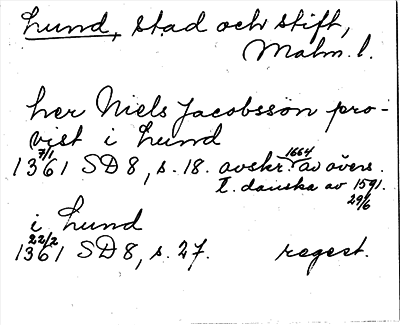 Lund, stad och stift,
Malm. l.
her Niels Jacobsson pro-
vist i Lund
7/1
1361 SD 8, s. 18. avskr. 1664 av övers.
t. danska av 1591.
29/6
i Lund
22/2
1361 SD 8, s. 27. regest.